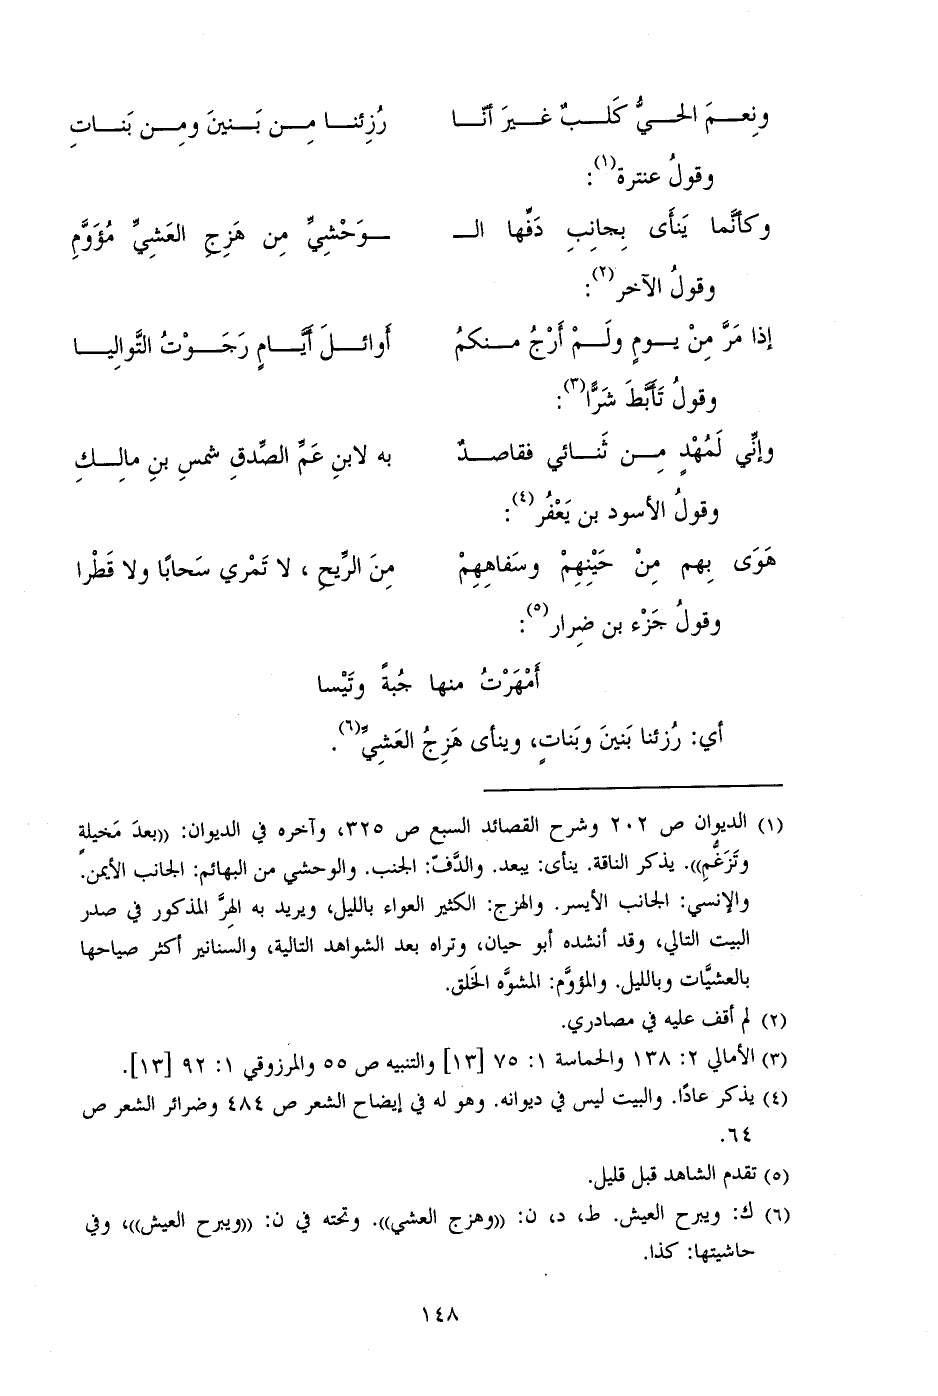 ونِعـــمَ الحـــيُّ كَلـــبٌ غـــيرَ أنّـــا رُزِئنـــا مِـــن بَـــنينَ ومِـــن بَنـــاتِ
وقولُ عنترة(١):
وكأنَّما يَنأَى بِجانِبِ دَفِّها الـــ ـــوَحْشِيِّ مِن هَزِجِ العَشِيِّ مُؤَوَّمِ
وقولُ الآخر(٢):
إذا مَرَّ مِنْ يـــومٍ ولَـــمْ أَرْجُ مـــنكمُ أوائـــلَ أيَّـــامٍ رَجَـــوْتُ التَّواليـــا
وقولُ تَأَبَّطَ شَرًّا(٣):
وإنِّي لَمُهْدٍ مِـــن ثَنـــائي فقاصـــدٌ به لابنِ عَمِّ الصِّدقِ شمسِ بنِ مالِـــكِ
وقولُ الأسود بن يَعْفُر(٤):
هَوَى بِهم مِنْ حَيْنِهِمْ وسَفاهِهِمْ مِنَ الرِّيحِ ، لا تَمْري سَحابًا ولا قَطْرا
وقولُ جَزْء بن ضِرار(٥):
أَمْهَرْتُ منها جُبةً وتَيْسا
أي: رُزئنا بَنينَ وبَناتٍ، وينأى هَزِجُ العَشِيِّ(٦).
(١) الديوان ص ٢٠٢ وشرح القصائد السبع ص ٣٢٥، وآخره في الديوان: ((بعدَ مَخيلةٍ
وتَزَغُّمِ)). يذكر الناقة. ينأى: يبعد. والدَّفّ: الجنب. والوحشي من البهائم: الجانب الأيمن.
والإنسي: الجانب الأيسر. والهزج: الكثير العواء بالليل، ويريد به الهِرَّ المذكور في صدر
البيت التالي، وقد أنشده أبو حيان، وتراه بعد الشواهد التالية، والسنانير أكثر صياحها
بالعشيَّات وبالليل. والمؤوَّم: المشوَّه الخَلق.
(٢) لم أقف عليه في مصادري.
(٣) الأمالي ٢: ١٣٨ والحماسة ١: ٧٥ [١٣] والتنبيه ص ٥٥ والمرزوقي ١: ٩٢ [١٣].
(٤) يذكر عادًا. والبيت ليس في ديوانه. وهو له في إيضاح الشعر ص ٤٨٤ وضرائر الشعر ص
٦٤.
(٥) تقدم الشاهد قبل قليل.
(٦) ك: ويبرح العيش. ط، د، ن: ((وهزج العشي)). وتحته في ن: ((ويبرح العيش))، وفي
حاشيتها: كذا.
١٤٨